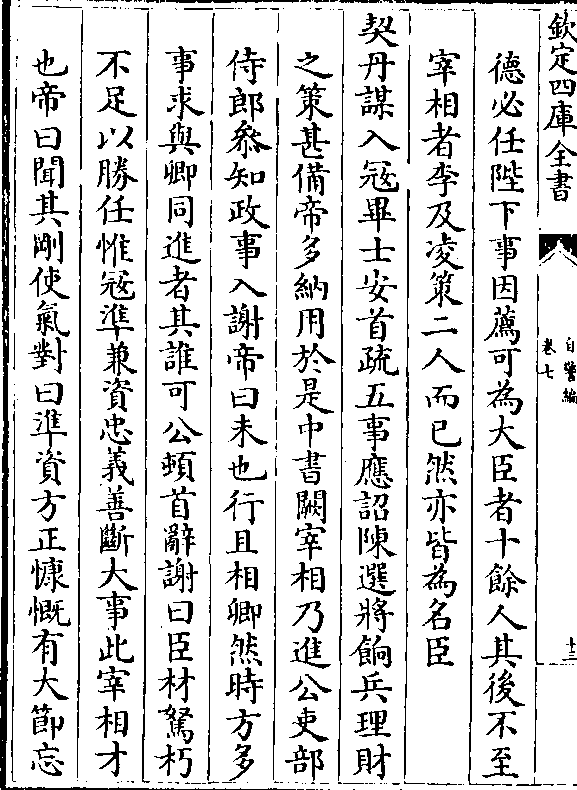 欽定四庫全書
自警編
卷七
十三
德必任陛下事因薦可為大臣者十餘人其後不至
宰相者李及凌策二人而已然亦皆為名臣
契丹謀入冦畢士安首疏五事應詔陳選將餉兵理財
之策甚備帝多納用於是中書闕宰相乃進公吏部
侍郎叅知政事入謝帝曰未也行且相卿然時方多
事求與卿同進者其誰可公頓首辭謝曰臣材駑朽
不足以勝任惟冦準兼資忠義善斷大事此宰相才
也帝曰聞其剛使氣對曰準資方正慷慨有大節忘